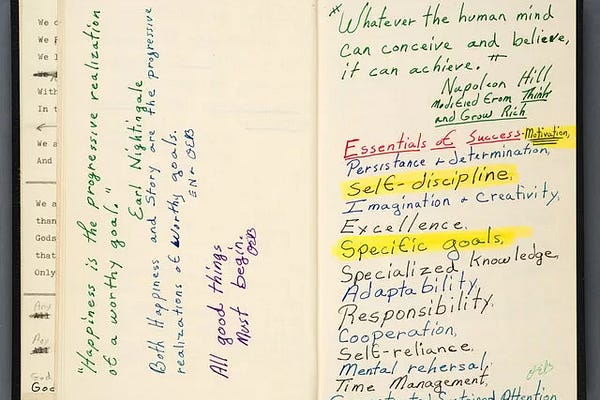 We
We
We
With
In t
We a
And
We a
than
Gods
that
Only
Any
All
Any
All
God
God
"Happiness is the progressive realization
of a worthy goal."
Earl Nightingale
Both Happiness and Story are the progressive
realizations of worthy goals.
EN & OEB
All good things
Must begin.
OEB
*Whatever the human mind
can conceive and believe,
it can achieve."
Napoleon Hill,
Modified From Think
and Grow Rich
Essentials of Success-Motivation,
Persistance & determination,
Self-discipline,
Imagination & Creativity,
Excellence,
Specific goals,
Specialized knowledge,
Adaptability,
Responsibility,
Cooperation,
Self-reliance,
Mental rehersal,
OEB
Time Management,
Sustained Attention